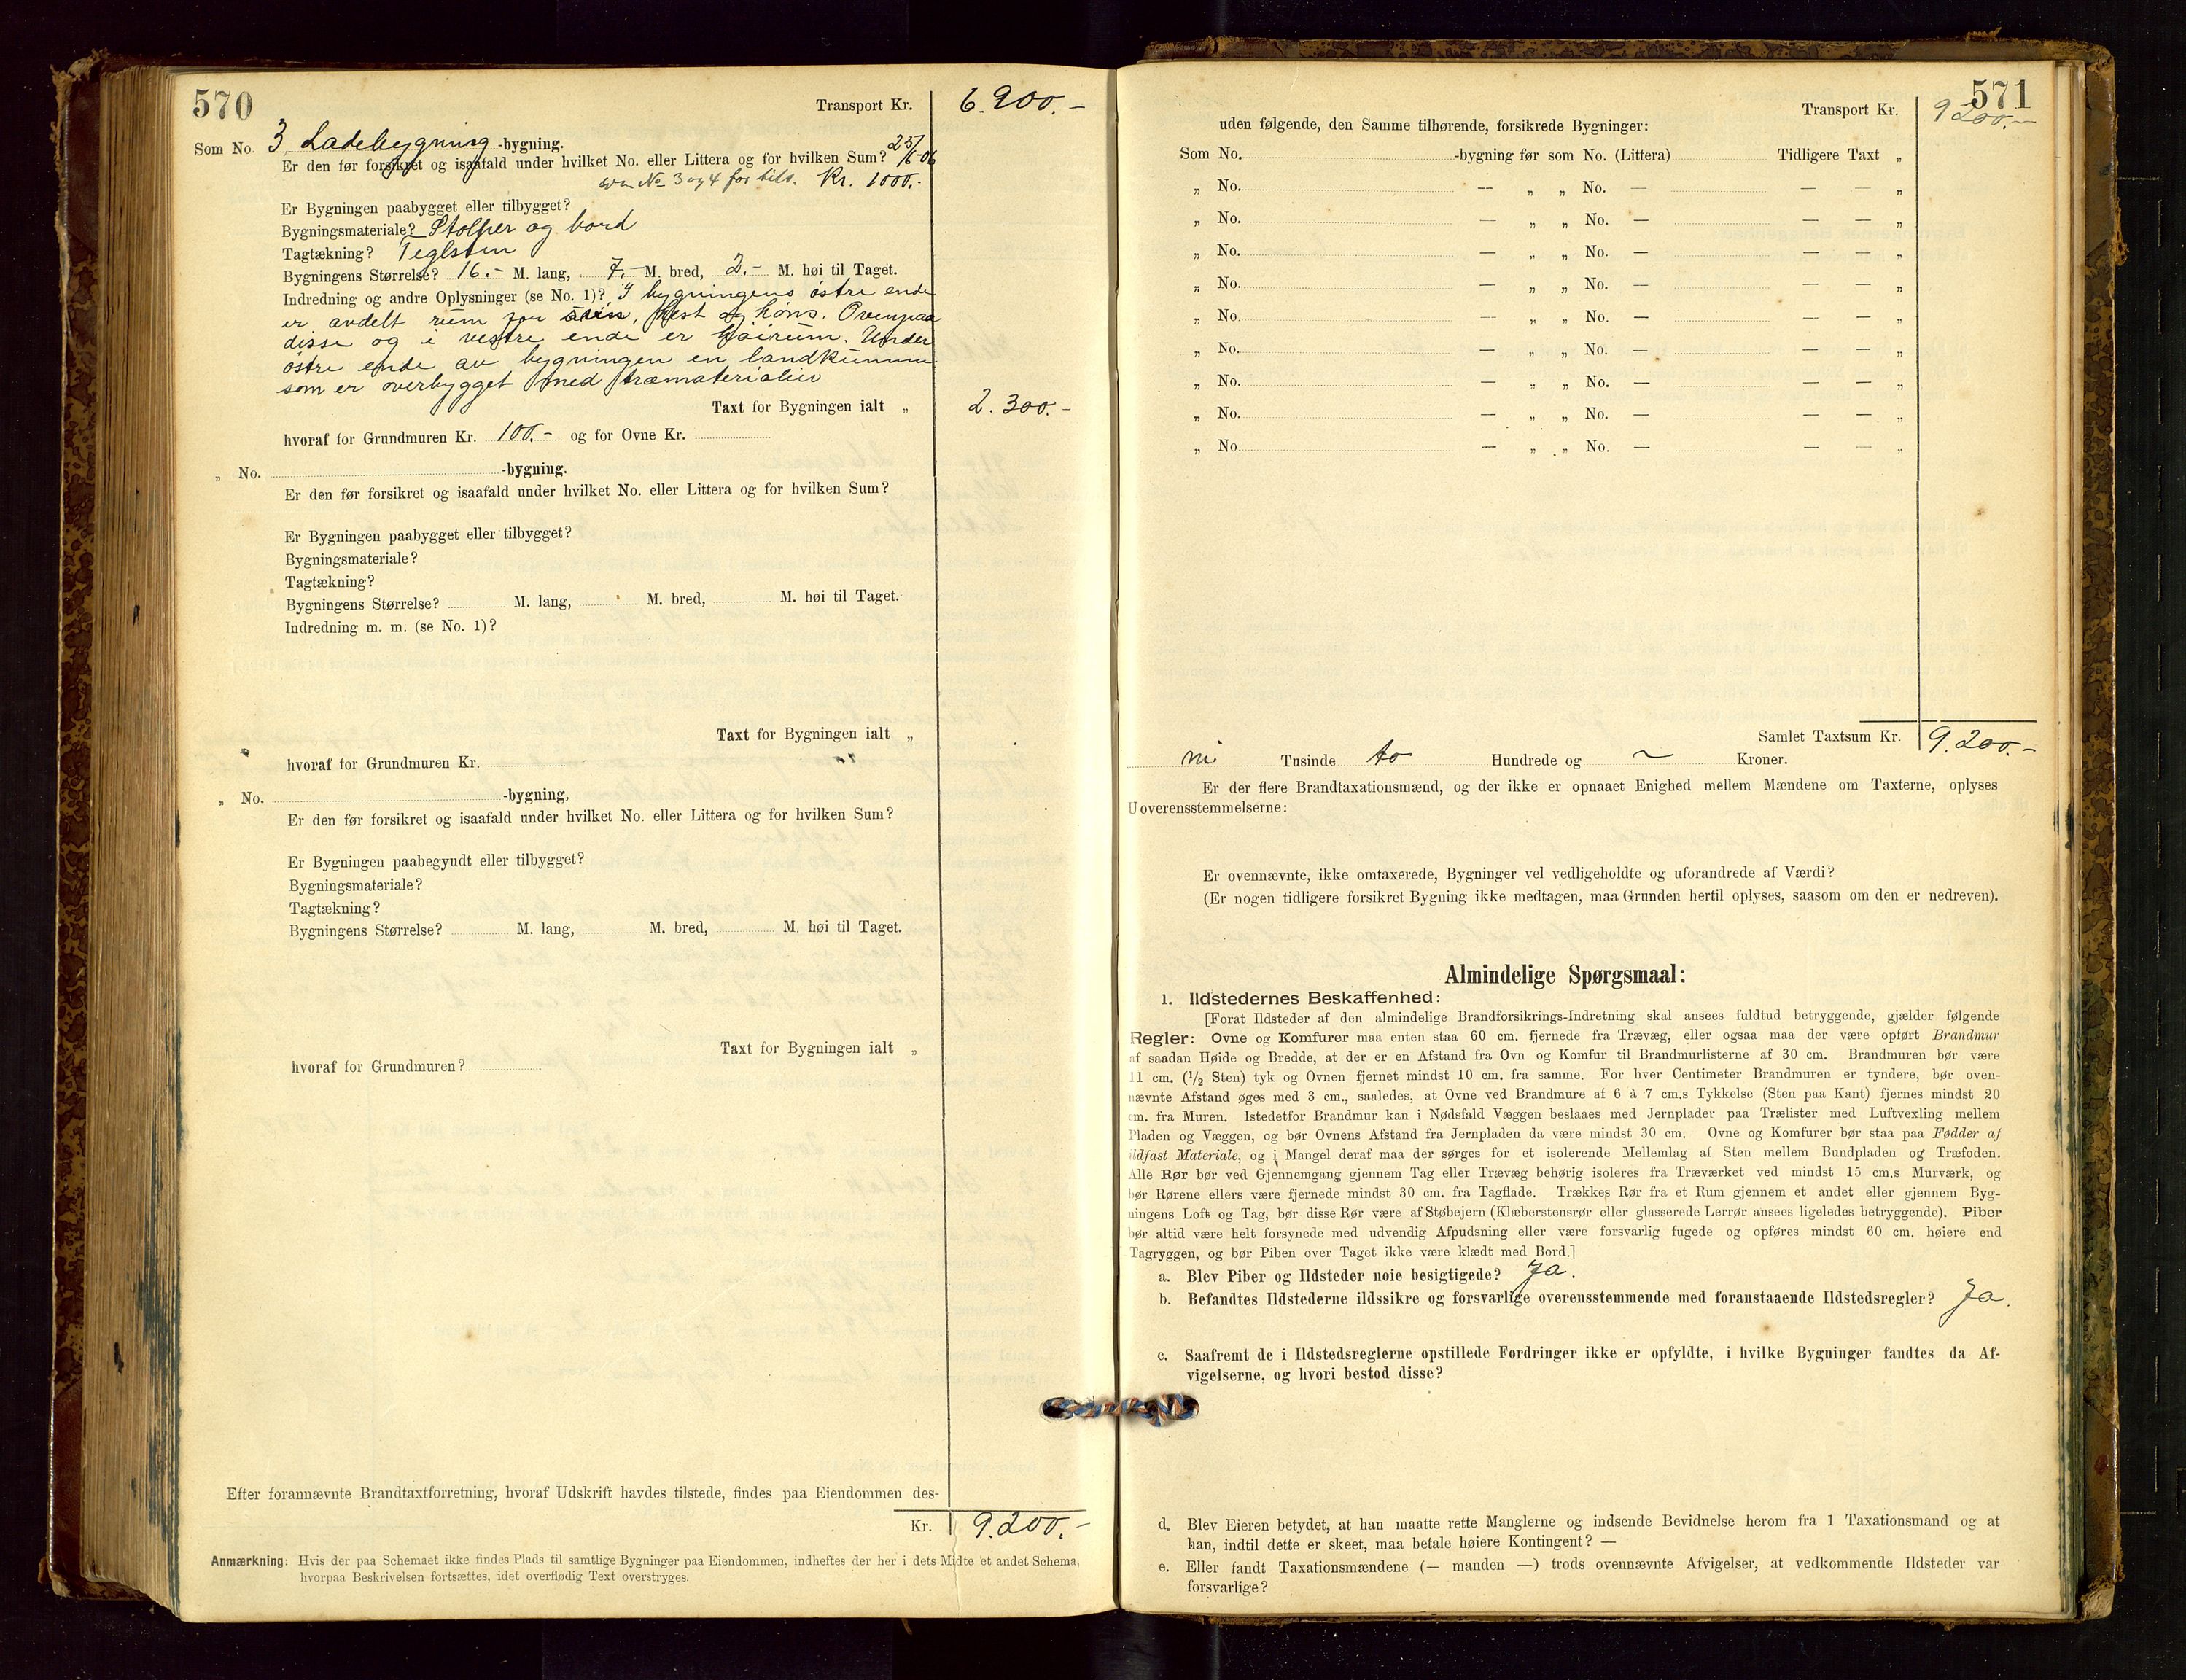 570
Transport Kr. 6.900.-
Som No. 3 Ladebygning -bygning.
Er den før forsikret og isaafald under hvilket No. eller Littera og for hvilken Sum? 25/6-06
som No 3 og 4 for tils. Kr. 1000.-
Er Bygningen paabygget eller tilbygget?
Bygningsmateriale? Stolper og bord
Tagtækning? Teglsten
Bygningens Størrelse? 16.- M. lang, 7.- M. bred, 2.- M. høi til Taget.
Indredning og andre Oplysninger (se No. 1)? I bygningens östre ende
er avdelt rum for svin, hest og höns. Ovenpaa
disse og i vestre ende er höirum. Under
östre ende av bygningen en landkumme
som er overbygget med træmaterialer
Taxt for Bygningen ialt „ 2.300.-
hvoraf for Grundmuren Kr. 100.- og for Ovne Kr.
„ No. -bygning.
Er den før forsikret og isaafald under hvilket No. eller Littera og for hvilken Sum?
Er Bygningen paabygget eller tilbygget?
Bygningsmateriale?
Tagtækning?
Bygningens Størrelse? M. lang, M. bred, M. høi til Taget.
Indredning m. m. (se No. 1)?
Taxt for Bygningen ialt „
hvoraf for Grundmuren Kr.
„ No. -bygning,
Er den før forsikret og isaafald under hvilket No. eller Littera og for hvilken Sum?
Er Bygningen paabegyudt eller tilbygget?
Bygningsmateriale?
Tagtækning?
Bygningens Størrelse? M. lang, M. bred, M. høi til Taget.
Taxt for Bygningen ialt „
hvoraf for Grundmuren?
Efter forannævnte Brandtaxtforretning, hvoraf Udskrift havdes tilstede, findes paa Eiendommen des-
Kr. 9.200.-
Anmærkning: Hvis der paa Schemaet ikke findes Plads til samtlige Bygninger paa Eiendommen, indheftes der her i dets Midte et andet Schema,
hvorpaa Beskrivelsen fortsættes, idet overflødig Text overstryges.
571
Transport Kr. 9200.-
uden følgende, den Samme tilhørende, forsikrede Bygninger:
Som No. -bygning før som No. (Littera) Tidligere Taxt „
„ No. — „ „ No. — — — „
„ No. — „ „ No. — — — „
„ No. — „ „ No. — — — „
„ No. — „ „ No. — — — „
„ No. — „ „ No. — — — „
„ No. — „ „ No. — — — „
„ No. — „ „ No. — — — „
„ No. — „ „ No. — — — „
„ No. — „ „ No. — — — „
Samlet Taxtsum Kr. 9.200.-
ni Tusinde to Hundrede og ~ Kroner.
Er der flere Brandtaxationsmænd, og der ikke er opnaaet Enighed mellem Mændene om Taxterne, oplyses
Uoverensstemmelserne:
Er ovennævnte, ikke omtaxerede, Bygninger vel vedligeholdte og uforandrede af Værdi?
(Er nogen tidligere forsikret Bygning ikke medtagen, maa Grunden hertil oplyses, saasom om den er nedreven).
Almindelige Spørgsmaal:
1. Ildstedernes Beskaffenhed:
[Forat Ildsteder af den almindelige Brandforsikrings-Indretning skal ansees fuldtud betryggende, gjælder følgende
Regler: Ovne og Komfurer maa enten staa 60 cm. fjernede fra Trævæg, eller ogsaa maa der være opført Brandmur
af saadan Høide og Bredde, at der er en Afstand fra Ovn og Komfur til Brandmurlisterne af 30 cm. Brandmuren bør være
11 cm. (1/2 Sten) tyk og Ovnen fjernet mindst 10 cm. fra samme. For hver Centimeter Brandmuren er tyndere, bør oven-
nævnte Afstand øges med 3 cm., saaledes, at Ovne ved Brandmure af 6 à 7 cm.s Tykkelse (Sten paa Kant) fjernes mindst 20
cm. fra Muren. Istedetfor Brandmur kan i Nødsfald Væggen beslaaes med Jernplader paa Trælister med Luftvexling mellem
Pladen og Væggen, og bør Ovnens Afstand fra Jernpladen da være mindst 30 cm. Ovne og Komfurer bør staa paa Fødder af
ildfast Materiale, og i Mangel deraf maa der sørges for et isolerende Mellemlag af Sten mellem Bundpladen og Træfoden.
Alle Rør bør ved Gjennemgang gjennem Tag eller Trævæg behørig isoleres fra Træværket ved mindst 15 cm.s Murværk, og
bør Rørene ellers være fjernede mindst 30 cm. fra Tagflade. Trækkes Rør fra et Rum gjennem et andet eller gjennem Byg-
ningens Loft og Tag, bør disse Rør være af Støbejern (Klæberstensrør eller glasserede Lerrør ansees ligeledes betryggende). Piber
bør altid være helt forsynede med udvendig Afpudsning eller være forsvarlig fugede og opføres mindst 60 cm. høiere end
Tagryggen, og bør Piben over Taget ikke være klædt med Bord.]
a. Blev Piber og Ildsteder nøie besigtigede? Ja.
b. Befandtes Ildstederne ildssikre og forsvarlige overensstemmende med foranstaaende Ildstedsregler? Ja.
c. Saafremt de i Ildstedsreglerne opstillede Fordringer ikke er opfyldte, i hvilke Bygninger fandtes da Af-
vigelserne, og hvori bestod disse?
d. Blev Eieren betydet, at han maatte rette Manglerne og indsende Bevidnelse herom fra 1 Taxationsmand og at
han, indtil dette er skeet, maa betale høiere Kontingent? —
e. Eller fandt Taxationsmændene (— manden —) trods ovennævnte Afvigelser, at vedkommende Ildsteder var
forsvarlige?